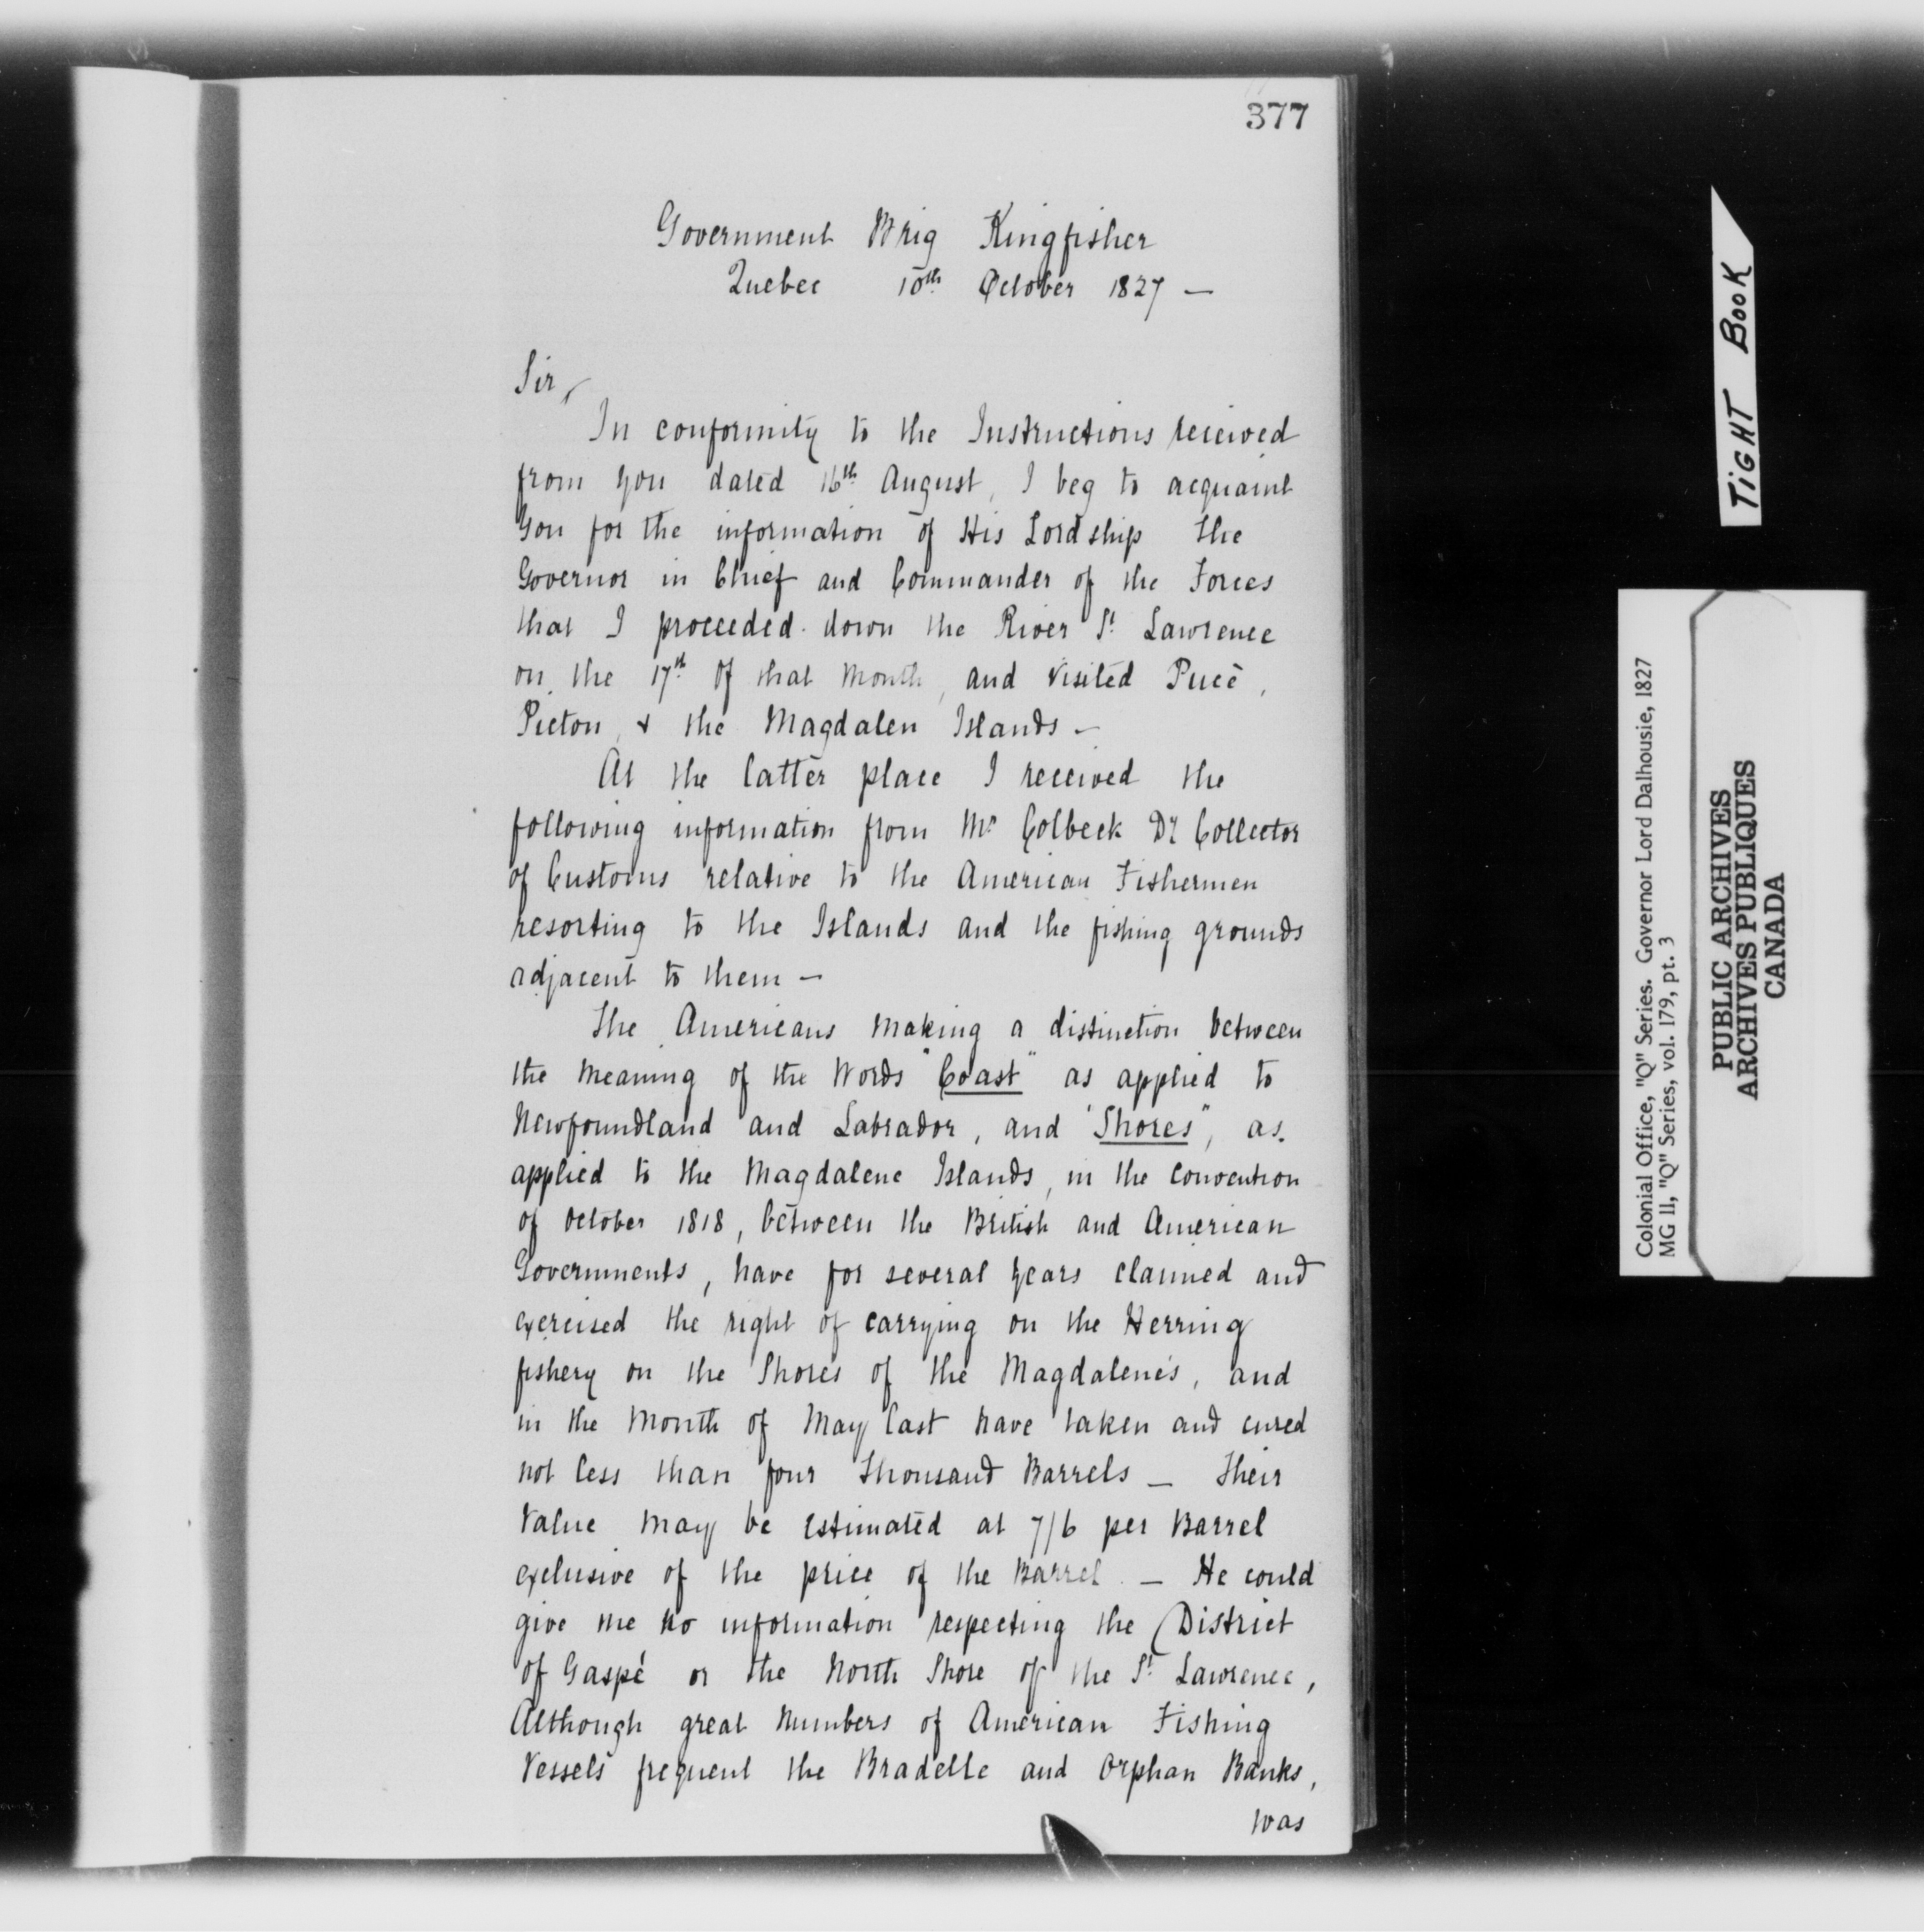 377
Government Brig Kingfisher
Quebec 10th October 1827 —
Sir,
In conformity to the Instructions received
from you dated 16th August, I beg to acquaint
you for the information of His Lordship the
Governor in Chief and Commander of the Forces
that I proceeded down the River St Lawrence
on the 17th of that Month, and visited Percé,
Picton, & the Magdalen Islands —
At the latter place I received the
following information from Mr Colbeck Dy Collector
of Customs relative to the American Fishermen
resorting to the Islands and the fishing grounds
adjacent to them —
The Americans making a distinction between
the meaning of the Words "Coast" as applied to
Newfoundland and Labrador, and "Shores", as
applied to the Magdalene Islands, in the convention
of October 1818, between the British and American
Governments, have for several years claimed and
exercised the right of carrying on the Herring
fishery on the Shores of the Magdalenes, and
in the Month of May last have taken and cured
not less than four Thousand Barrels — Their
Value may be estimated at 7/6 per Barrel
exclusive of the price of the Barrel. — He could
give me no information respecting the District
of Gaspé or the North Shore of the St Lawrence,
Although great Numbers of American Fishing
Vessels frequent the Bradelle and Orphan Banks,
was
TIGHT BOOK
Colonial Office, "Q" Series. Governor Lord Dalhousie, 1827
MG 11, "Q" Series, vol. 179, pt. 3
PUBLIC ARCHIVES
ARCHIVES PUBLIQUES
CANADA